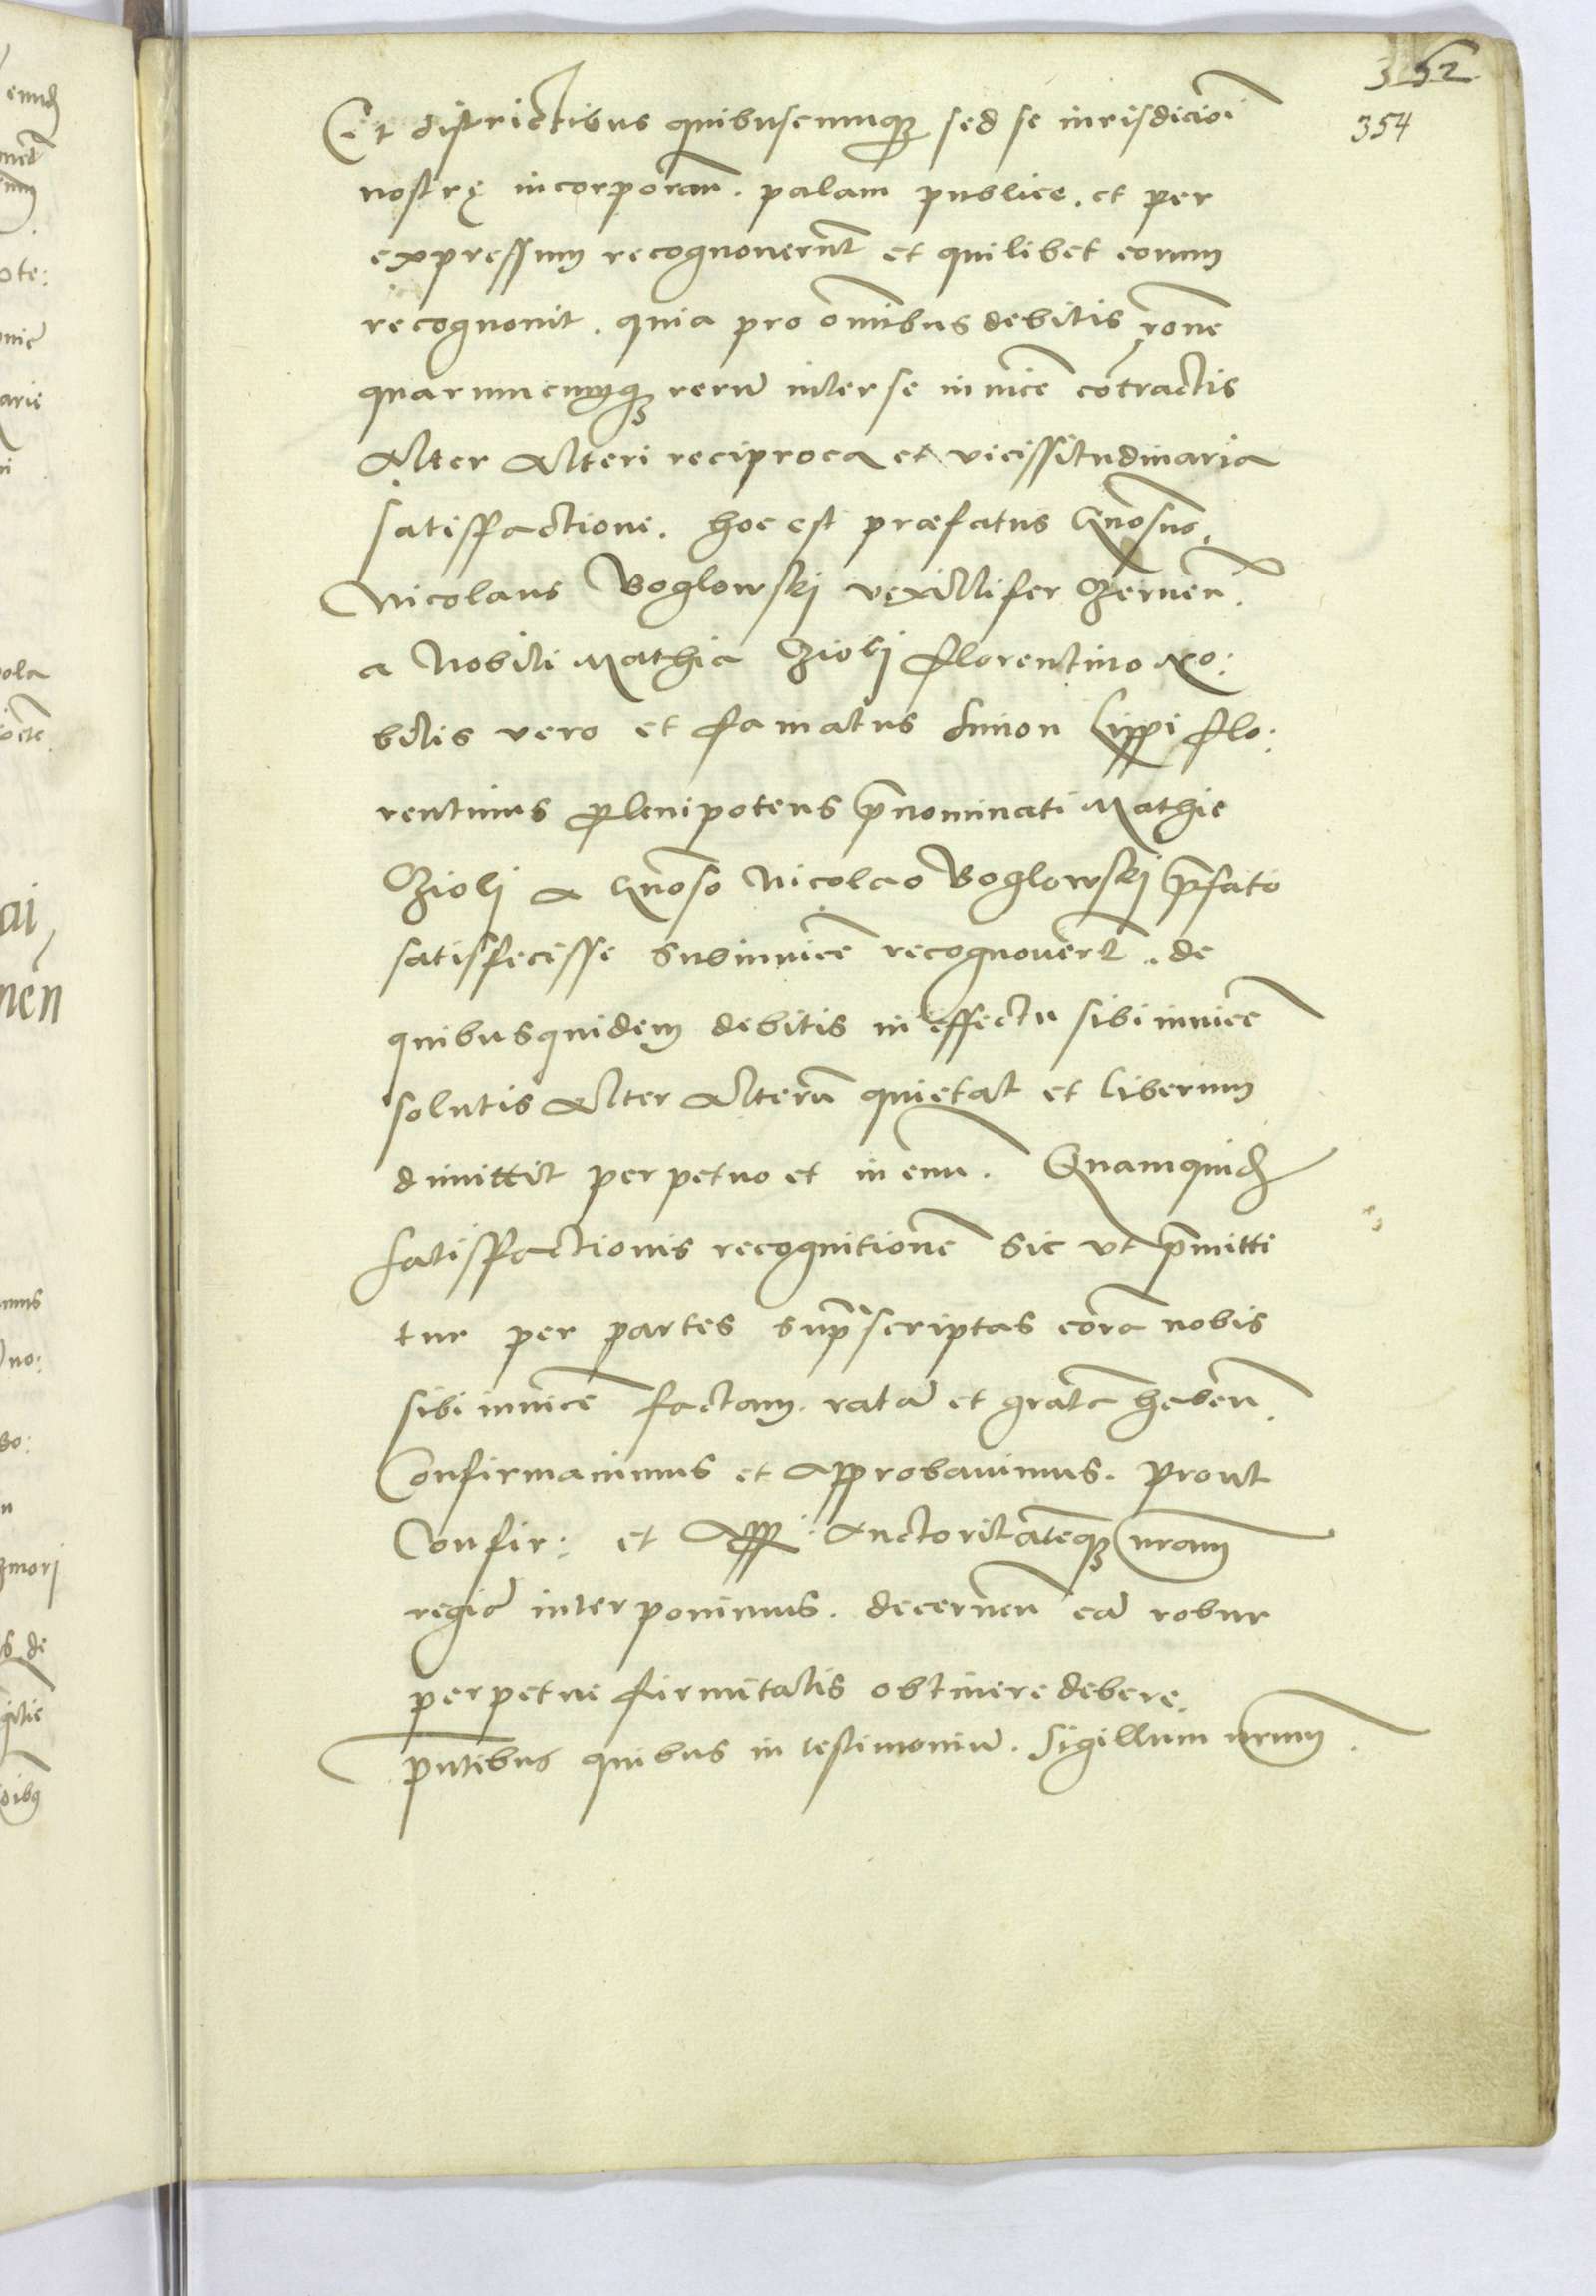 352
354
Et districtibus quibuscunq sed se iurisdicioī
nostrę incorporan̄. palam publice. et per
expressum recognouerūt et quilibet eorum
recognouit. quia pro om̄ibus debitis rōne
quarumcunq rerū inter se inuicē cōtractis
Alter Alteri reciproca et vicissitudinaria
satisffactione. hoc est præfatus Gn̄osus
Nicolaus Boglowskj vexillifer Czernen̄.
a Nobili Mathia Ziolj florentino No:
bilis vero et famatus Simon Lippi flo:
rentinus plenipotens p̄nominati Mathie
Zioli a Gn̄oso Nicolao Boglowskj p̄fato
satisfecisse subinuicē recognouerūt. de
quibusquidem debitis in effectu sibi inuicē
solutis Alter Alterū quietat et liberum
dimittit perpetuo et in euū. Quamquid
satisffactionis recognitionē sic vt p̄mitti
tur per partes supͣscriptas corā nobis
sibi inuicē factam. ratā et gratā haben̄
Confirmauimus et approbauimus. prout
Confir: et App: Auctoritatēq nr̄am
regiā interponimus. decernen̄ eā robur
perpetue firmitatis obtinere debere.
p̄ntibus quibus in testimoniū. sigillum nr̄um.